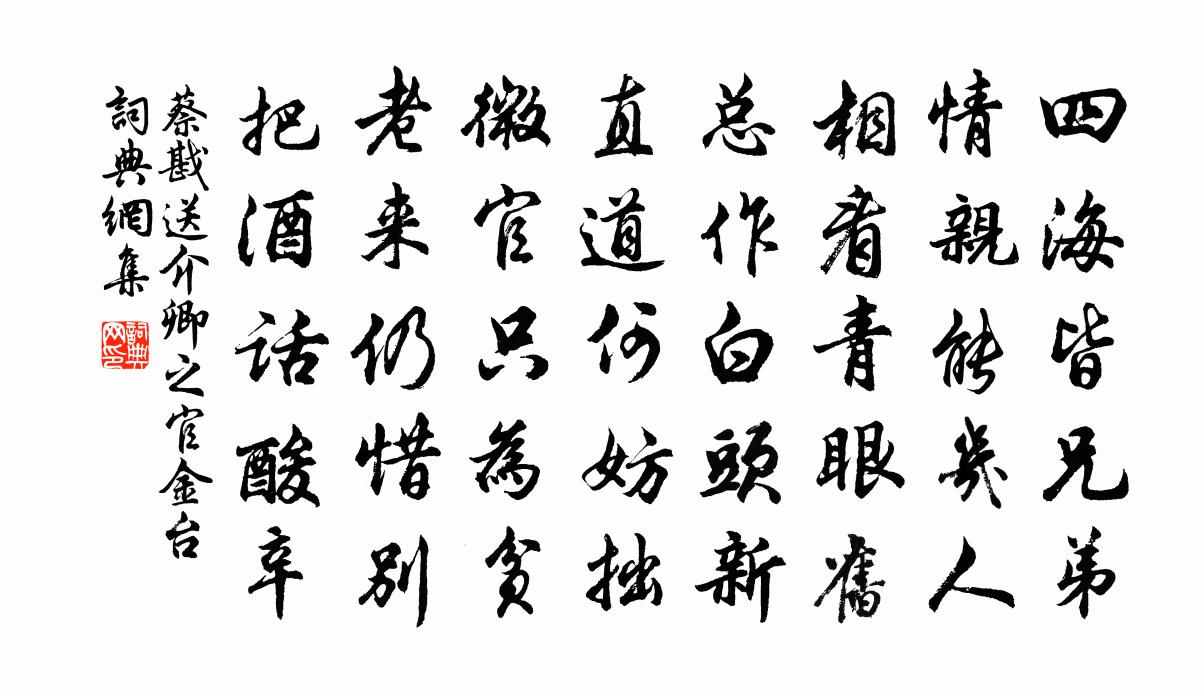 四海皆兄弟
情親能幾人
相看青眼舊
总作白頭新
直道何妨拙
微官只為貧
老来仍惜別
把酒話酸辛
蔡戡送介卿之官金台
詞典網集
詞典
网印